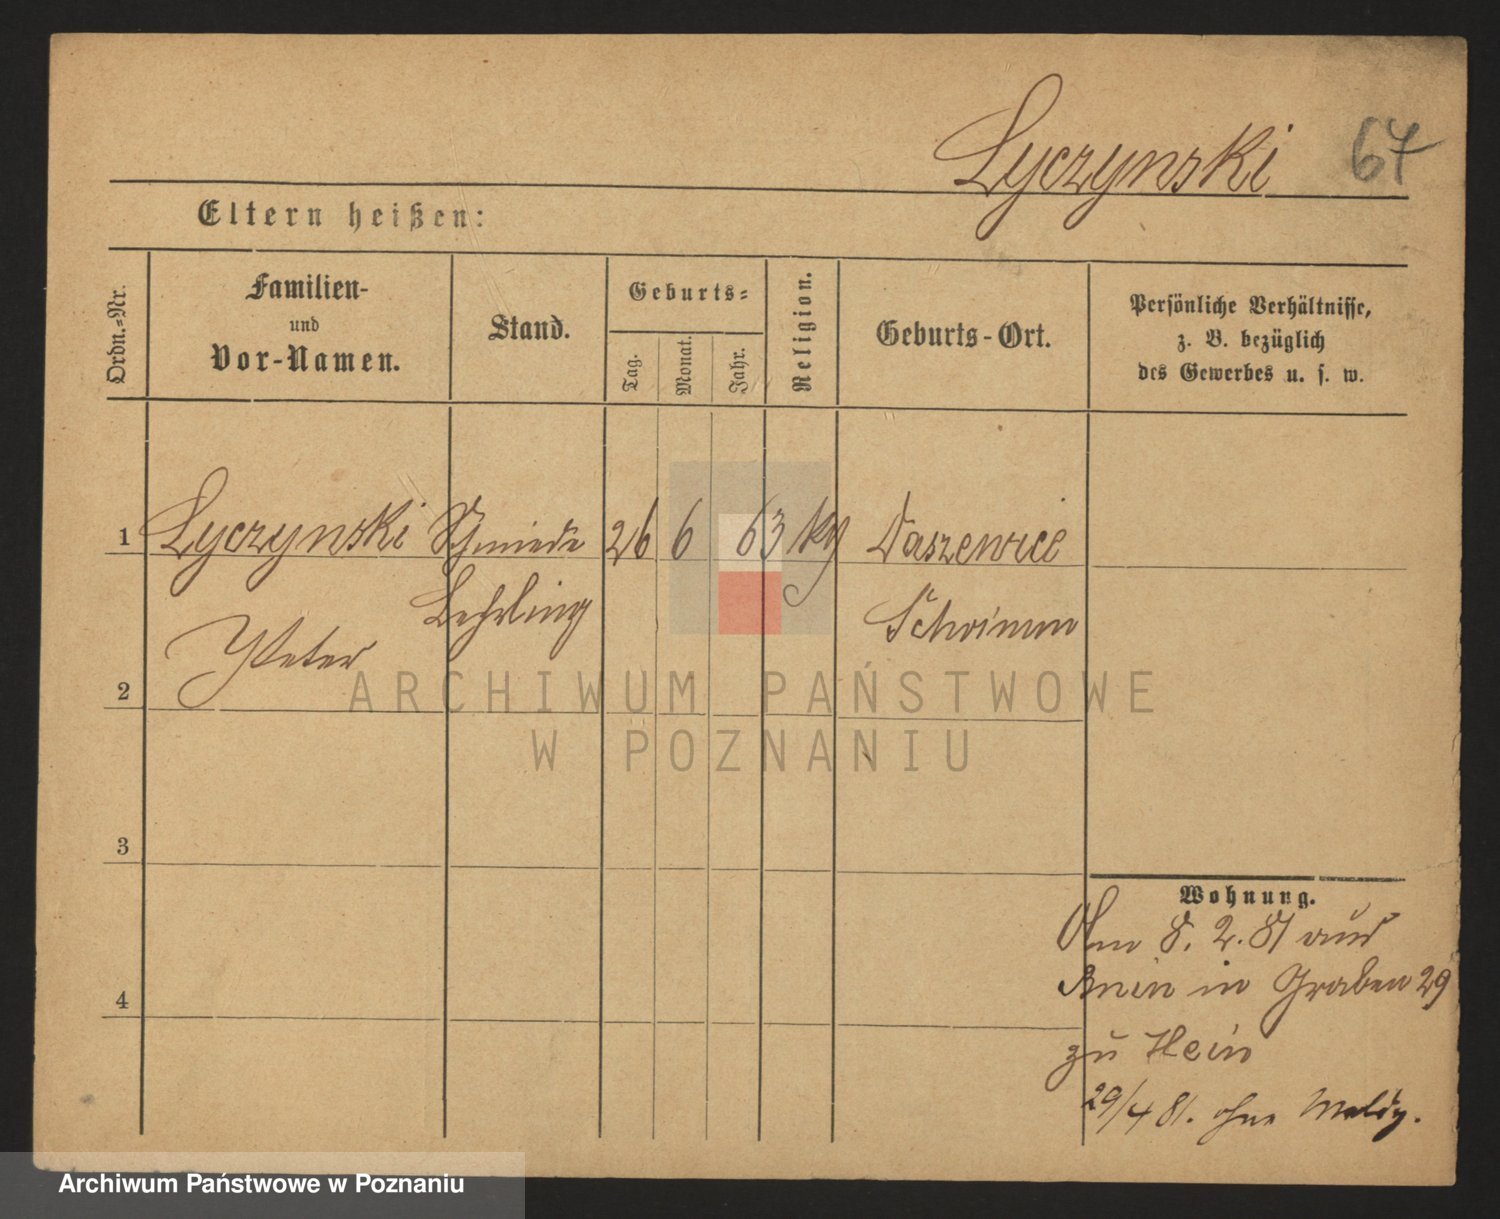 Lyczynski 67
Eltern heißen:
Ordn.-Nr.
Familien-
und
Vor-Namen.
Stand.
Geburts-
Tag.
Monat.
Jahr.
Religion.
Geburts-Ort.
Persönliche Verhältnisse,
z. B. bezüglich
des Gewerbes u. s. w.
1 Lyczynski Schmiede 26 6 63 Daszewice
Lehrling Schrimm
Peter
2
ARCHIWUM PAŃSTWOWE
W POZNANIU
3
Wohnung.
Am 8. 2. 81 aus
in Graben 29
4
zu Hein
29/4 81. ohne Meldg.
Archiwum Państwowe w Poznaniu